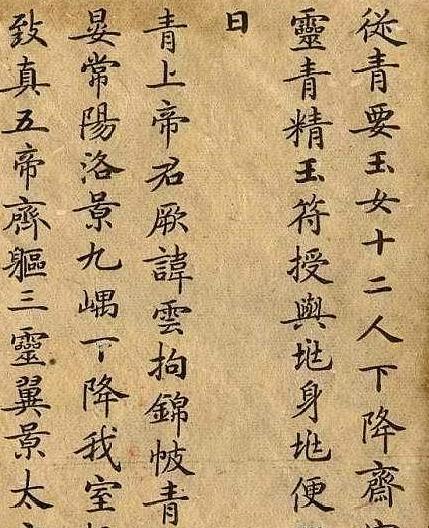 從青要玉女十二人下降齋
靈青精玉符授與兆身兆便
曰
青上帝君厥諱雲拘錦帔青
晏常陽洛景九嵎下降我室
致真五帝齊軀三靈翼景太